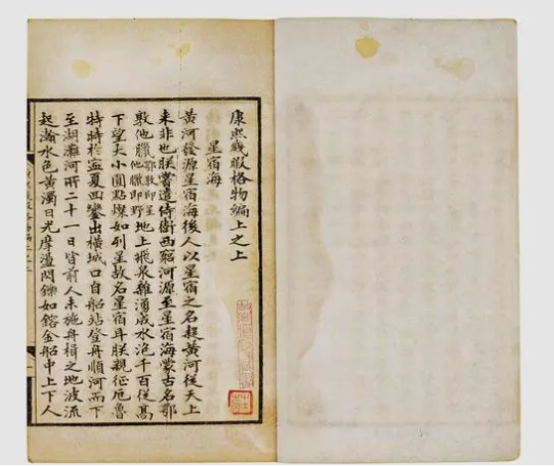 康熙幾暇格物編上之上
星宿海
黃河發源星宿海後人以星宿之名起黃河從天上
来非也朕嘗遣侍衛西窮河源至星宿海蒙古名鄂
敦他臘鄂敦即星他臘即野地上飛泉雜湧成水泡千百從髙
下望大小圓點燦如列星故名星宿耳朕親征厄魯
特時於寧夏回鑾出橫城口自船站登舟順河而下
至湖灘河所二十一日皆前人未施舟楫之地波流
起瀚水色黃濁日光摩盪閃鑠如鎔金船中上下人